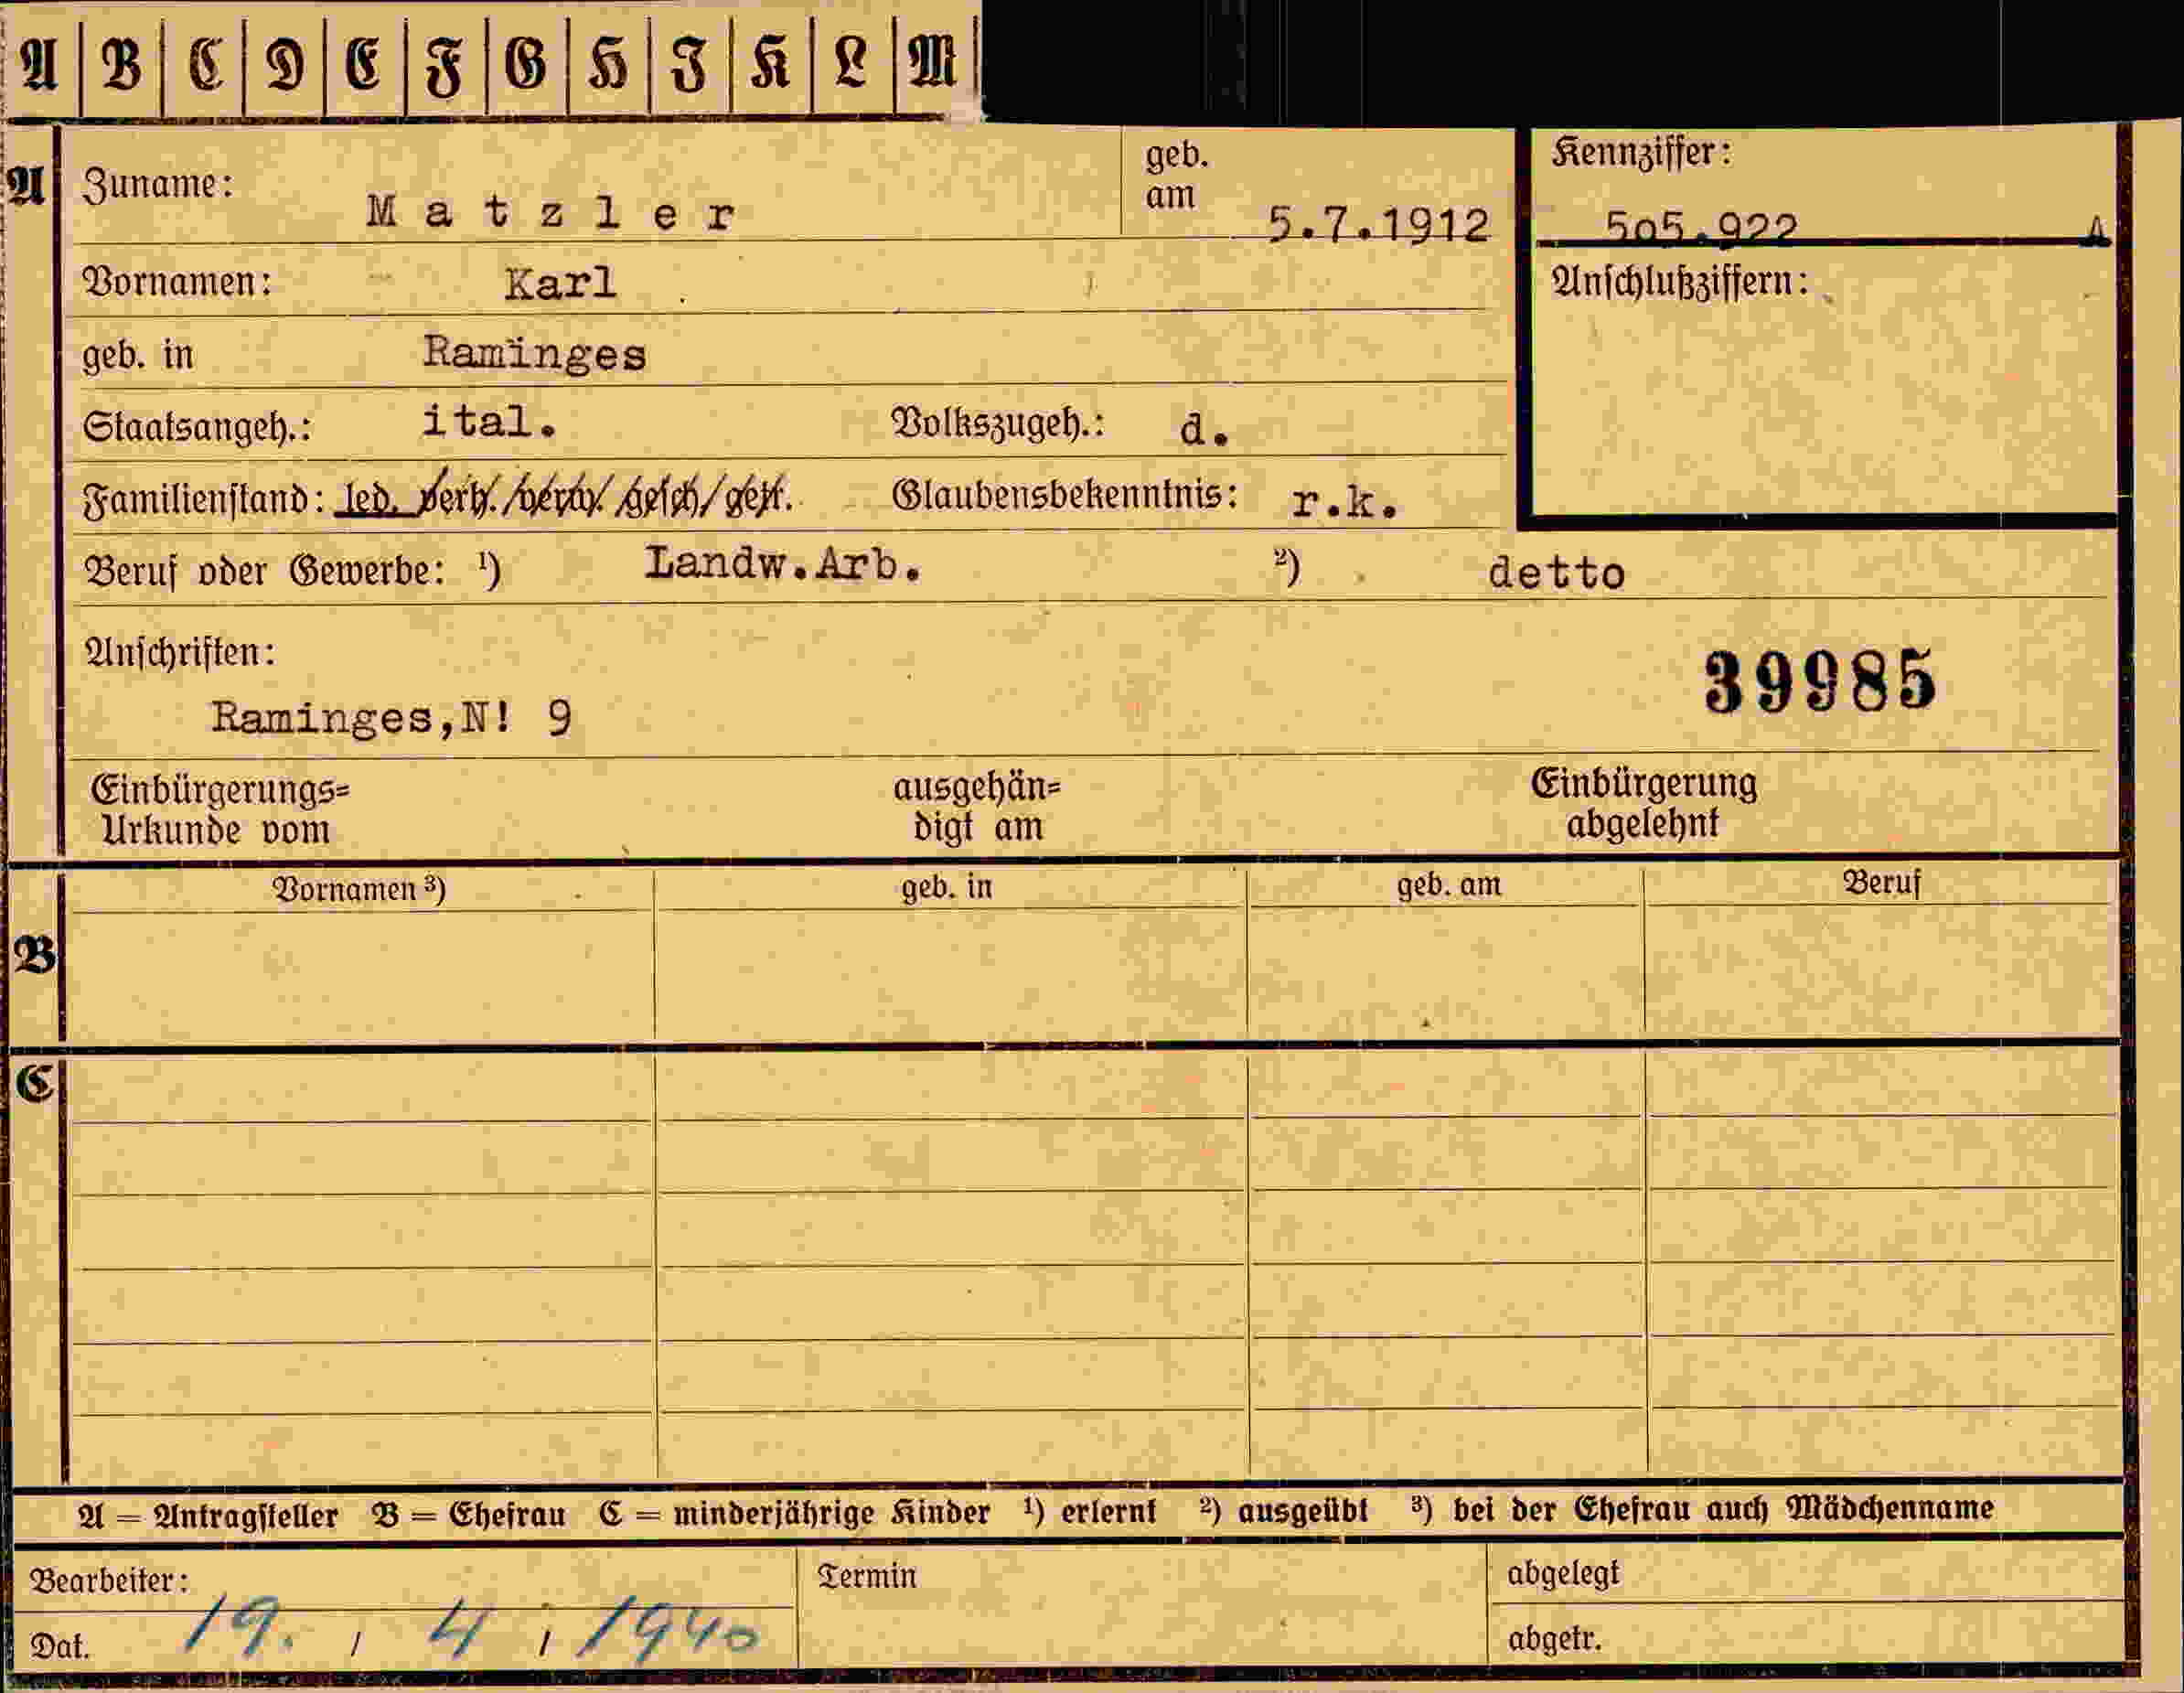 A B C D E F G H I K L M
A Zuname: Matzler geb. am 5.7.1912 Kennziffer: 505.922 A
Vornamen: Karl Anschlußziffern:
geb. in Raminges
Staatsangeh.: ital. Volkszugeh.: d.
Familienstand: led. verh./verw./gesch/getr. Glaubensbekenntnis: r.k.
Beruf oder Gewerbe: ¹) Landw.Arb. ²) detto
Anschriften: 39985
Raminges,N! 9
Einbürgerungs= ausgehän= Einbürgerung
Urkunde vom digt am abgelehnt
Vornamen ³) geb. in geb. am Beruf
B
C
A = Antragsteller B = Ehefrau C = minderjährige Kinder ¹) erlernt ²) ausgeübt ³) bei der Ehefrau auch Mädchenname
Bearbeiter: Termin abgelegt
Dat. 19. / 4 / 1940 abgetr.